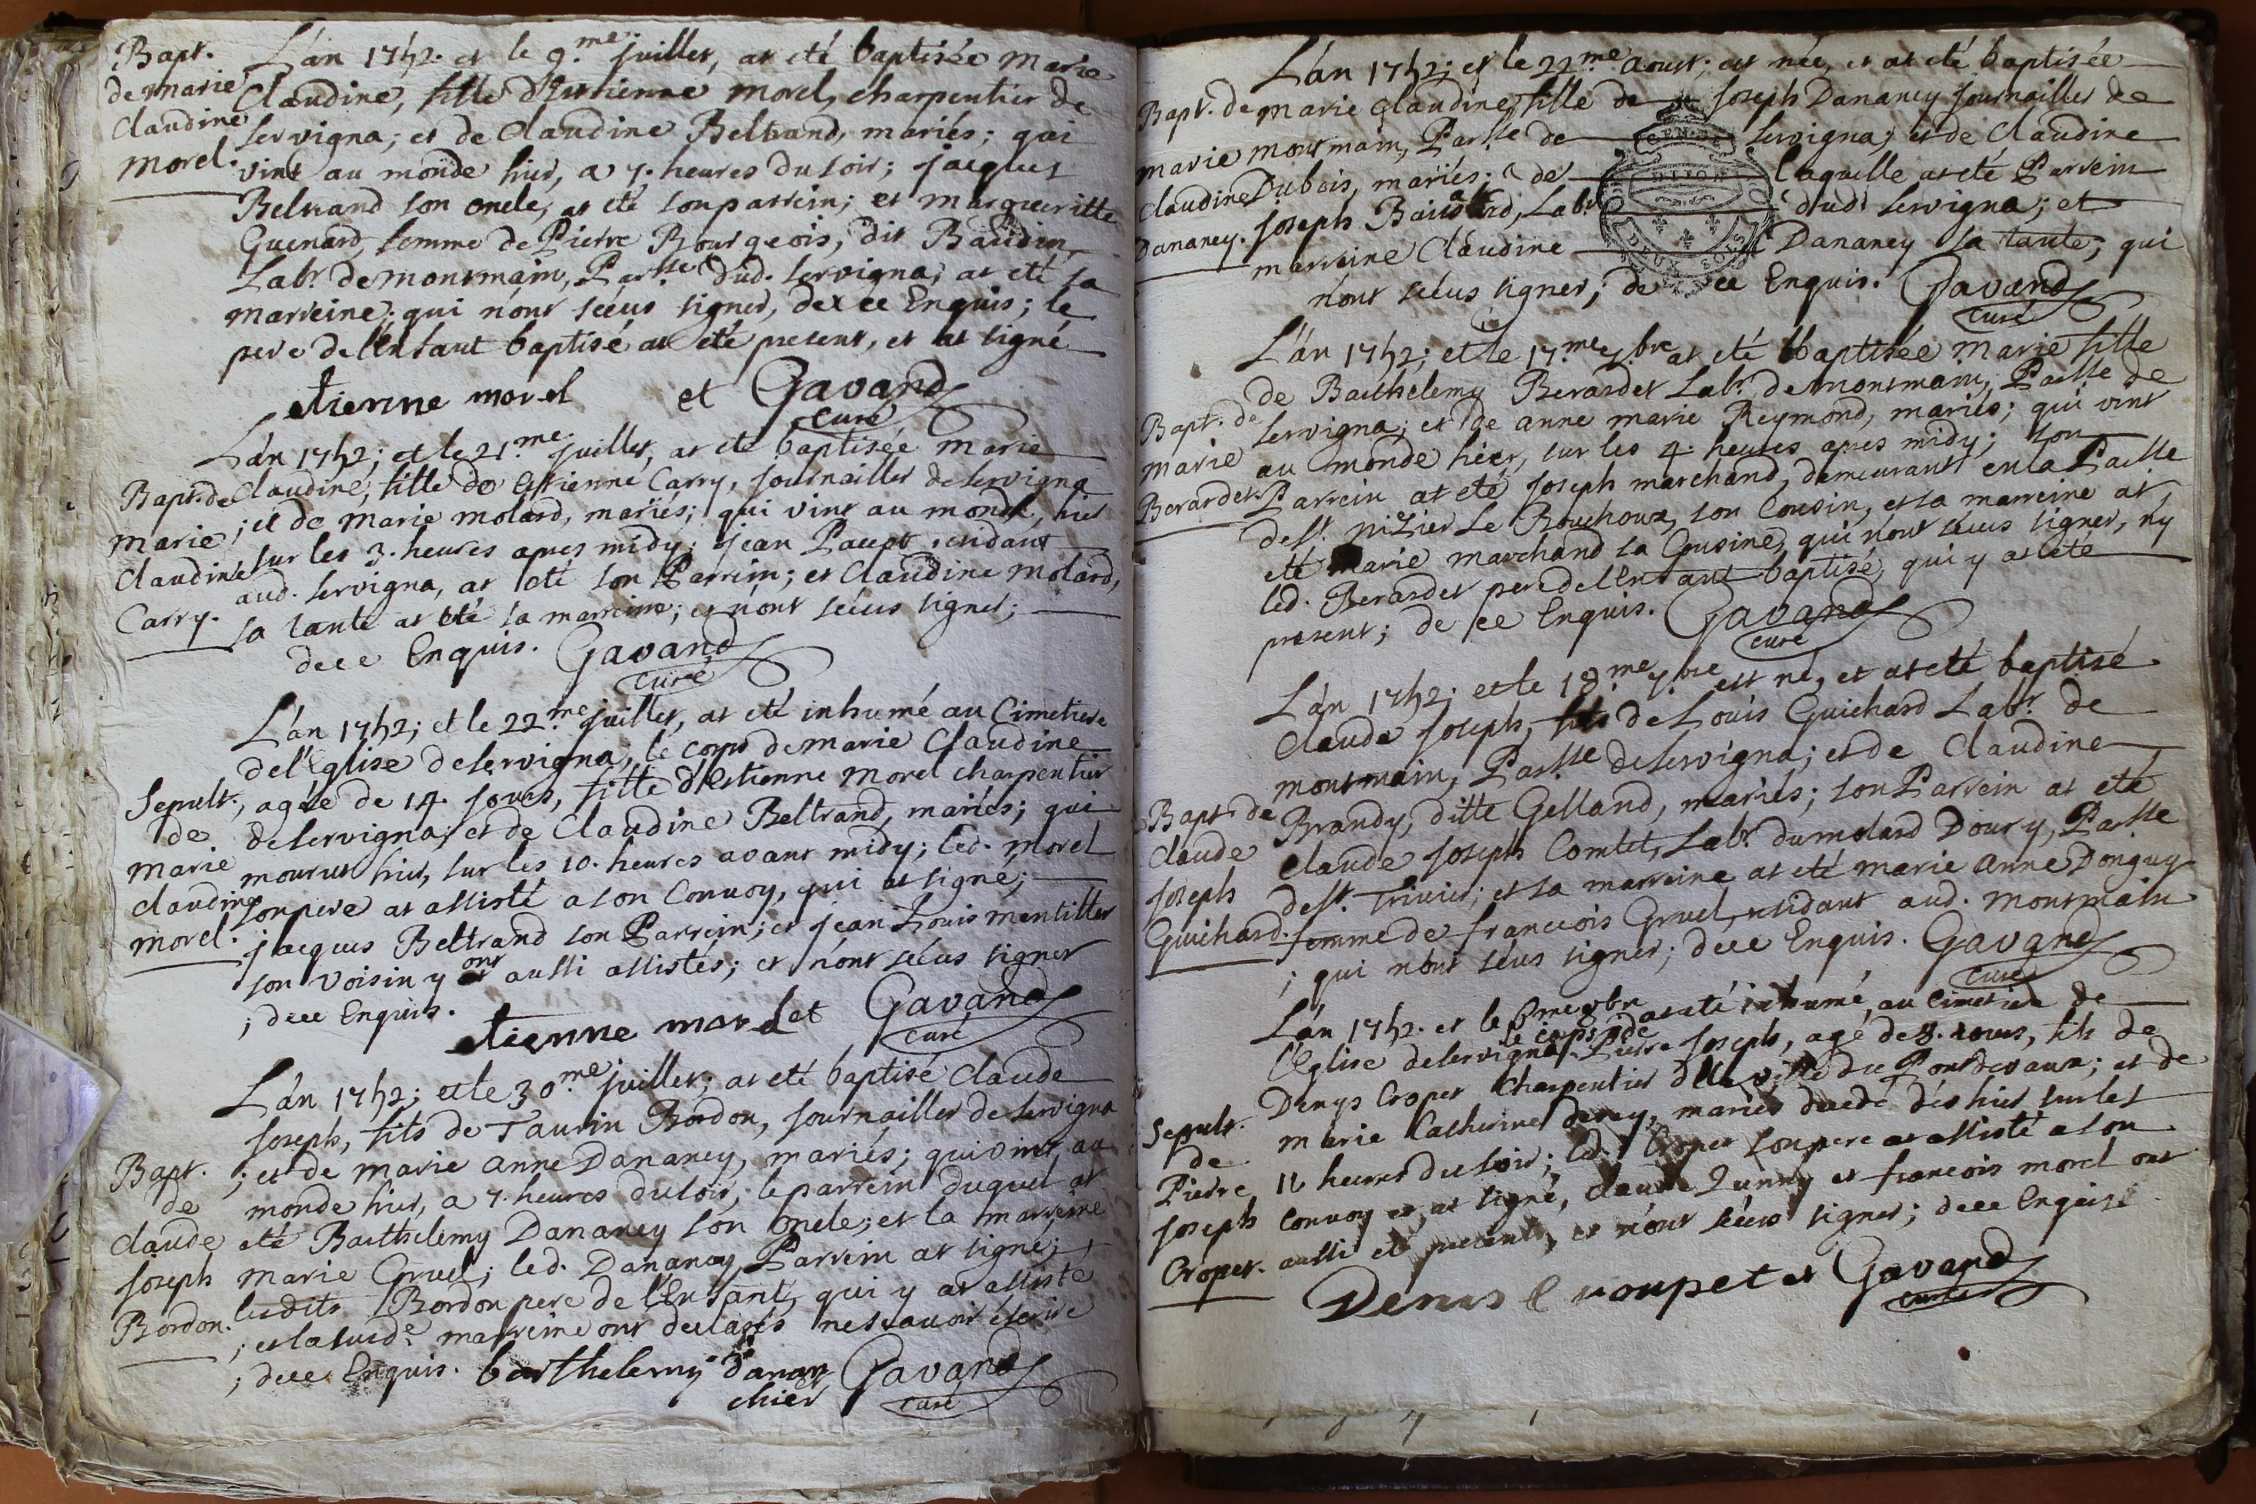 Bapt.
de marie
Claudine
morel.
L'án 1742. et le 9.me juillet, at eté baptisée marie
Claudine, fille d'Estienne morel, charpentier de
servigna; et de Claudine Beltrand, mariés; qui
vint au monde hier, a 7. heures du soir; jacques
Beltrand son oncle, at eté son parrein; et margueritte
Guenard, femme de Pierre Bourgeois, dit Baudin,
Labr. de montmain, Parsse dud. servigna, at eté sa
marreine; qui n'ont scéus signer, de ce Enquis; le
pere de l'Enfant baptisé at eté present, et at signé
etienne morel et Gavand
curé
Bapt. de
marie
Claudine
Carry.
L'án 1742; et le 21.me juillet, at eté baptisée marie
Claudine, fille de Estienne Carry, journailler de servigna
; et de marie molard, mariés; qui vint au monde, hier
sur les 3. heures apres midy; jean Pacot, residant
aud. servigna, at eté son Parrein; et Claudine molard,
sa tante at eté sa marreine; et n'ont scéus signer;
de ce Enquis. Gavand
curé
Sepult.
de
marie
claudine
morel.
L'án 1742; et le 22.me juillet, at eté inhumé au Cimetiere
de l'Eglise de servigna, le corps de marie Claudine
, agée de 14. jours, fille d'Estienne morel charpentier
de servigna; et de Claudine Beltrand, mariés; qui
mourut hier, sur les 10. heures avant midy; led. morel
son pere at assisté a son Convoy, qui at signé;
jacques Beltrand son Parrein; et jean Louis mentiller
son voisin y ont aussi assistés; et n'ont scéus signer
; de ce Enquis.
etienne morel et Gavand
curé
Bapt.
de
claude
joseph
Bordon.
L'án 1742; et le 30.me juillet; at eté baptisé Claude
joseph, fils de Taurin Bordon, journaillers de servigna
; et de marie anne Dananey, mariés; qui vint au
monde hier, a 7. heures du soir; le parrein duquel at
eté Barthelemy Dananey son oncle; et la marreine
marie Gruel; led. Dananey Parrein at signé;
ledits Bordon pere de l'Enfant, qui y at assisté
; et la susde. marreine ont declarés ne scavoir écrire
; de ce Enquis. barthelemy danan
chier Gavand
curé
Bapt. de
marie
Claudine
Dananey.
L'án 1742; et le 22.me aoust; est née, et at eté baptisée
marie Claudine, fille de joseph Dananey journailler de
montmain, Parsse de servigna; et de Claudine
Dubois, mariés; de laquelle at eté Parrein
joseph Labr. dud. servigna; et
marreine Claudine Dananey sa tante; qui
n'ont scéus signer; de ce Enquis. Gavand
curé
Bapt. de
marie
Berardet.
L'án 1742; et le 17.me 7.bre at eté baptisée marie fille
de Barthelemy Berardet Labr. de montmain, Parsse de
servigna; et de anne marie Reymond, mariés; qui vint
au monde hier, sur les 4. heures apres midy; son
Parrein at eté joseph marchand, demeurant en la Parsse
de st. nizier Le Bouchoux, son Cousin, et sa marreine at
eté marie marchand sa Cousine, qui n'ont scéus signer, ny
led. Berardet pere de l'Enfant baptisé, qui y at eté
present; de ce Enquis. Gavand
curé
Bapt. de
claude
joseph
Guichard.
L'án 1742; et le 18.me 7.bre est né, et at eté baptisé
Claude joseph, fils de Louis Guichard Labr. de
montmain, Parsse de servigna; et de Claudine
Brandy, ditte Gelland, mariés; son Parrein at eté
Claude joseph Comtet, Labr. du molard Doury, Parsse
de st. Trivier; et sa marreine at eté marie anne Donguy
femme de francois Gruel, residant aud. montmain
; qui n'ont scéus signer; de ce Enquis. Gavand
curé
Sepult.
de
Pierre
joseph
Cropet.
L'án 1742. et le at eté inhumé, au Cimetiere de
le corps de
l'Eglise de servigna, Pierre joseph, agé de 8. jours, fils de
Denys Cropet Charpentier de la ville du Pontdevaux; et de
marie Catherine derey, mariés decedé dés hier sur les
11 heures du soir; led. Cropet son pere at assisté a son
Convoy et at signé, claude et francois morel ont
aussi eté presents, et n'ont scéus signer; de ce Enquis
Denis Croupet et Gavand
curé